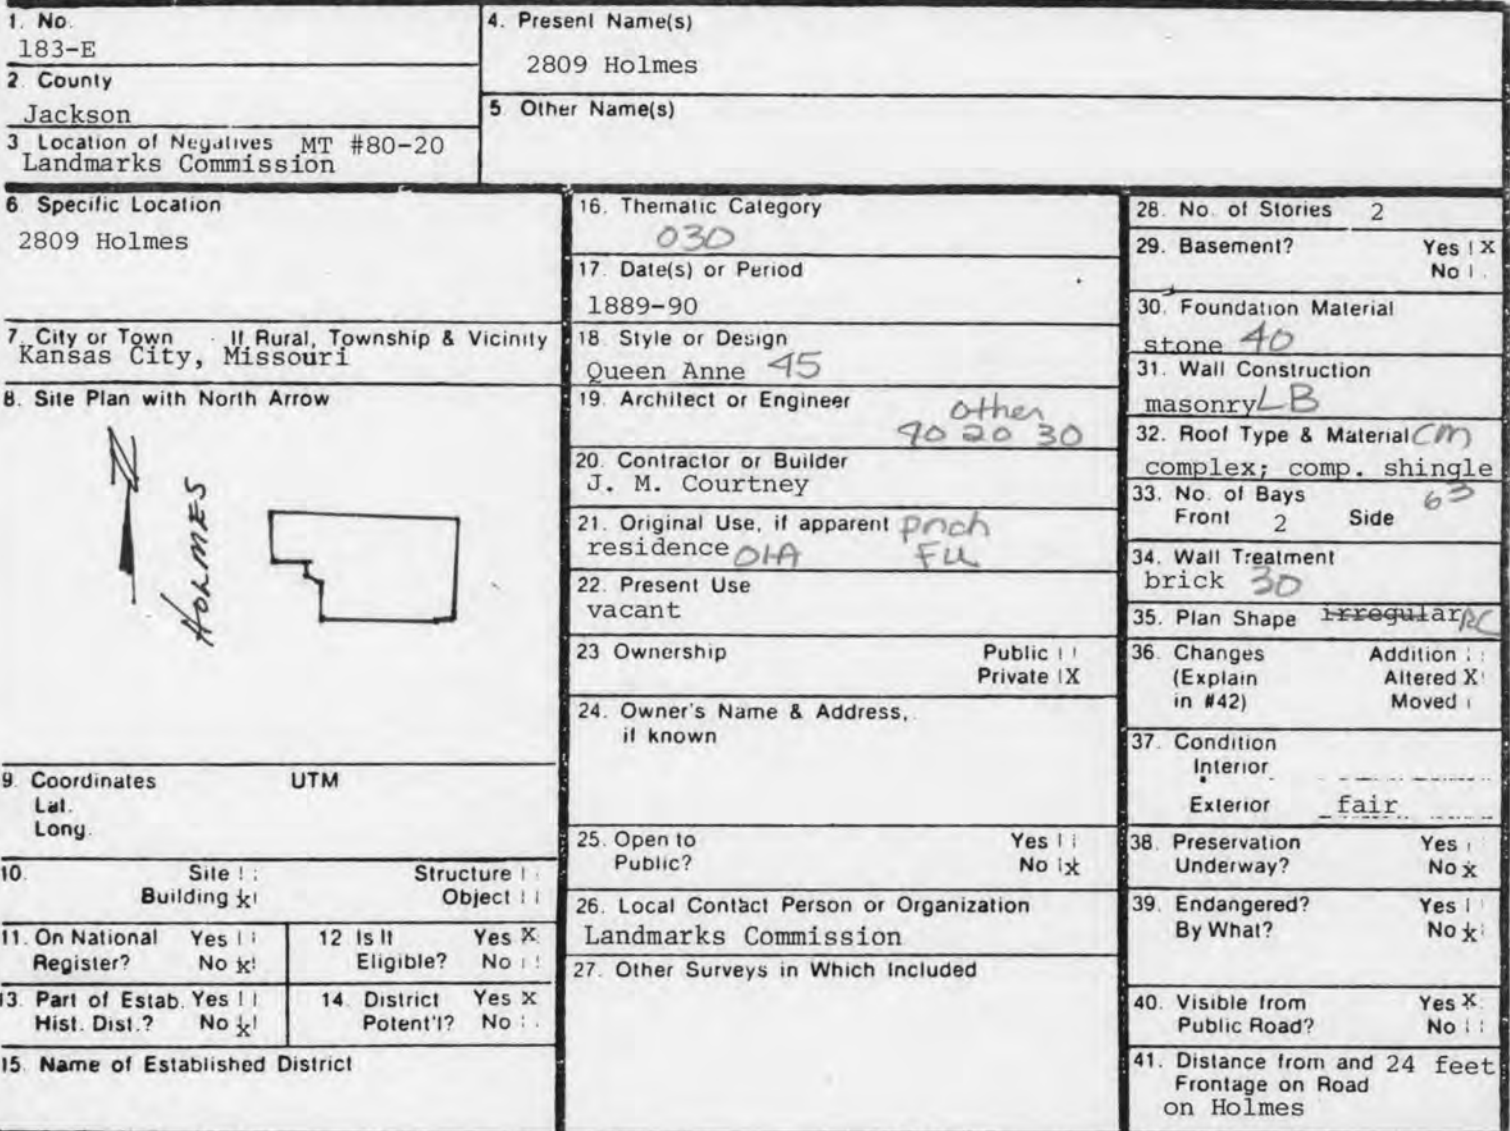 1. No.
183-E
2. County
Jackson
3 Location of Negatives MT #80-20
Landmarks Commission
4. Present Name(s)
2809 Holmes
5. Other Name(s)
6 Specific Location
2809 Holmes
7. City or Town If Rural, Township & Vicinity
Kansas City, Missouri
8. Site Plan with North Arrow
N
HOLMES
9. Coordinates UTM
Lat.
Long.
10. Site Structure
Building x Object
11. On National Yes
Register? No x
12 Is It Yes X
Eligible? No
13. Part of Estab. Yes
Hist. Dist.? No x
14. District Yes X
Potent'l? No
15. Name of Established District
16. Thematic Category
030
17. Date(s) or Period
1889-90
18. Style or Design
Queen Anne 45
19. Architect or Engineer other
90 20 30
20. Contractor or Builder
J. M. Courtney
21. Original Use, if apparent prch
residence 01A FU
22. Present Use
vacant
23 Ownership Public
Private X
24. Owner's Name & Address,
if known
25. Open to Yes
Public? No x
26. Local Contact Person or Organization
Landmarks Commission
27. Other Surveys in Which Included
28. No. of Stories 2
29. Basement? Yes X
No
30. Foundation Material
stone 40
31. Wall Construction
masonry LB
32. Roof Type & Material CM
complex; comp. shingle
33. No. of Bays 63
Front 2 Side
34. Wall Treatment
brick 30
35. Plan Shape irregular RC
36. Changes Addition
(Explain Altered X
in #42) Moved
37. Condition
Interior
Exterior fair
38. Preservation Yes
Underway? No x
39. Endangered? Yes
By What? No x
40. Visible from Yes X
Public Road? No
41. Distance from and 24 feet
Frontage on Road
on Holmes